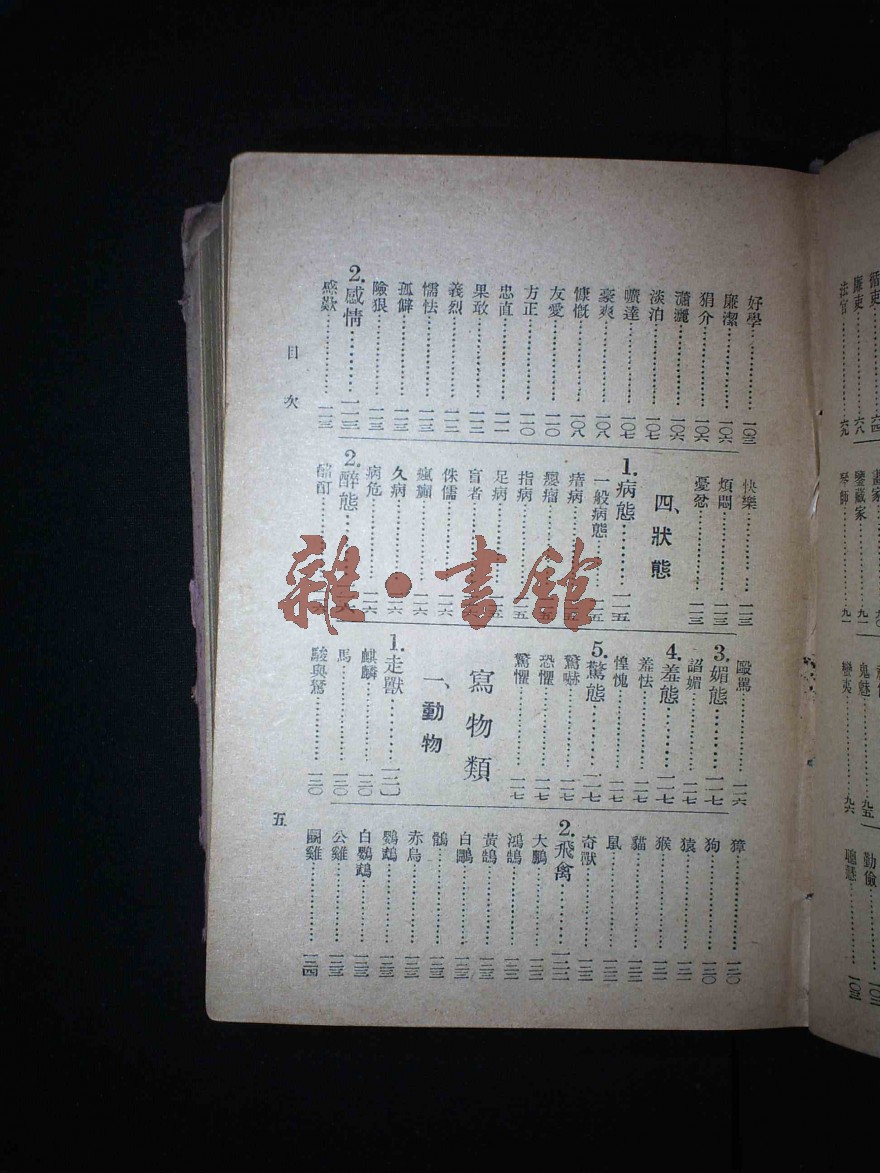 循吏
廉吏⋯⋯六八
法官⋯⋯六九
畫家
鑒藏家
琴師⋯⋯九一
鬼魅⋯⋯九五
蠻夷⋯⋯九六
勤儉
好學⋯⋯一〇三
廉潔⋯⋯一〇六
狷介⋯⋯一〇六
瀟灑⋯⋯一〇六
淡泊⋯⋯一〇七
曠達⋯⋯一〇七
豪爽⋯⋯一〇八
慷慨⋯⋯一〇八
友愛⋯⋯一一〇
方正⋯⋯一一〇
忠直⋯⋯一一一
果敢⋯⋯一一三
義烈⋯⋯一一三
懦怯⋯⋯一一三
孤僻⋯⋯一一三
險狠⋯⋯一一三
2.感情⋯⋯一一三
感歎⋯⋯一一三
快樂⋯⋯一一三
煩悶⋯⋯一一三
憂忿⋯⋯一一三
四、狀態
1.病態⋯⋯一一五
一般病態⋯⋯一一五
瘖病⋯⋯一一五
癭瘤⋯⋯一一五
指病⋯⋯一一五
足病⋯⋯一一五
盲者⋯⋯一一六
侏儒⋯⋯一一六
瘋癲⋯⋯一一六
久病⋯⋯一一六
病危⋯⋯一一六
2.醉態⋯⋯一一六
酩酊
毆罵⋯⋯一一六
3.媚態⋯⋯一一七
諂媚⋯⋯一一七
4.羞態⋯⋯一一七
羞怯⋯⋯一一七
惶愧⋯⋯一一七
5.驚態⋯⋯一一七
驚嚇⋯⋯一一七
恐懼⋯⋯一一七
驚懼⋯⋯一一七
寫物類
一、動物
1.走獸⋯⋯一二〇
麒麟⋯⋯一二〇
馬⋯⋯一二〇
駿與駑⋯⋯一二〇
獐⋯⋯一二〇
狗⋯⋯一二〇
猿⋯⋯一二一
猴⋯⋯一二一
貓⋯⋯一二二
鼠⋯⋯一二二
奇獸⋯⋯一二二
2.飛禽⋯⋯一二二
大鵬⋯⋯一二二
鴻鵠⋯⋯一二二
黃鵠⋯⋯一二三
白鷴⋯⋯一二三
鶻⋯⋯一二三
赤烏⋯⋯一二三
鸚鵡⋯⋯一二三
白鸚鵡⋯⋯一二三
公雞⋯⋯一二三
鬭雞⋯⋯一二四
目次
五
雜·書館